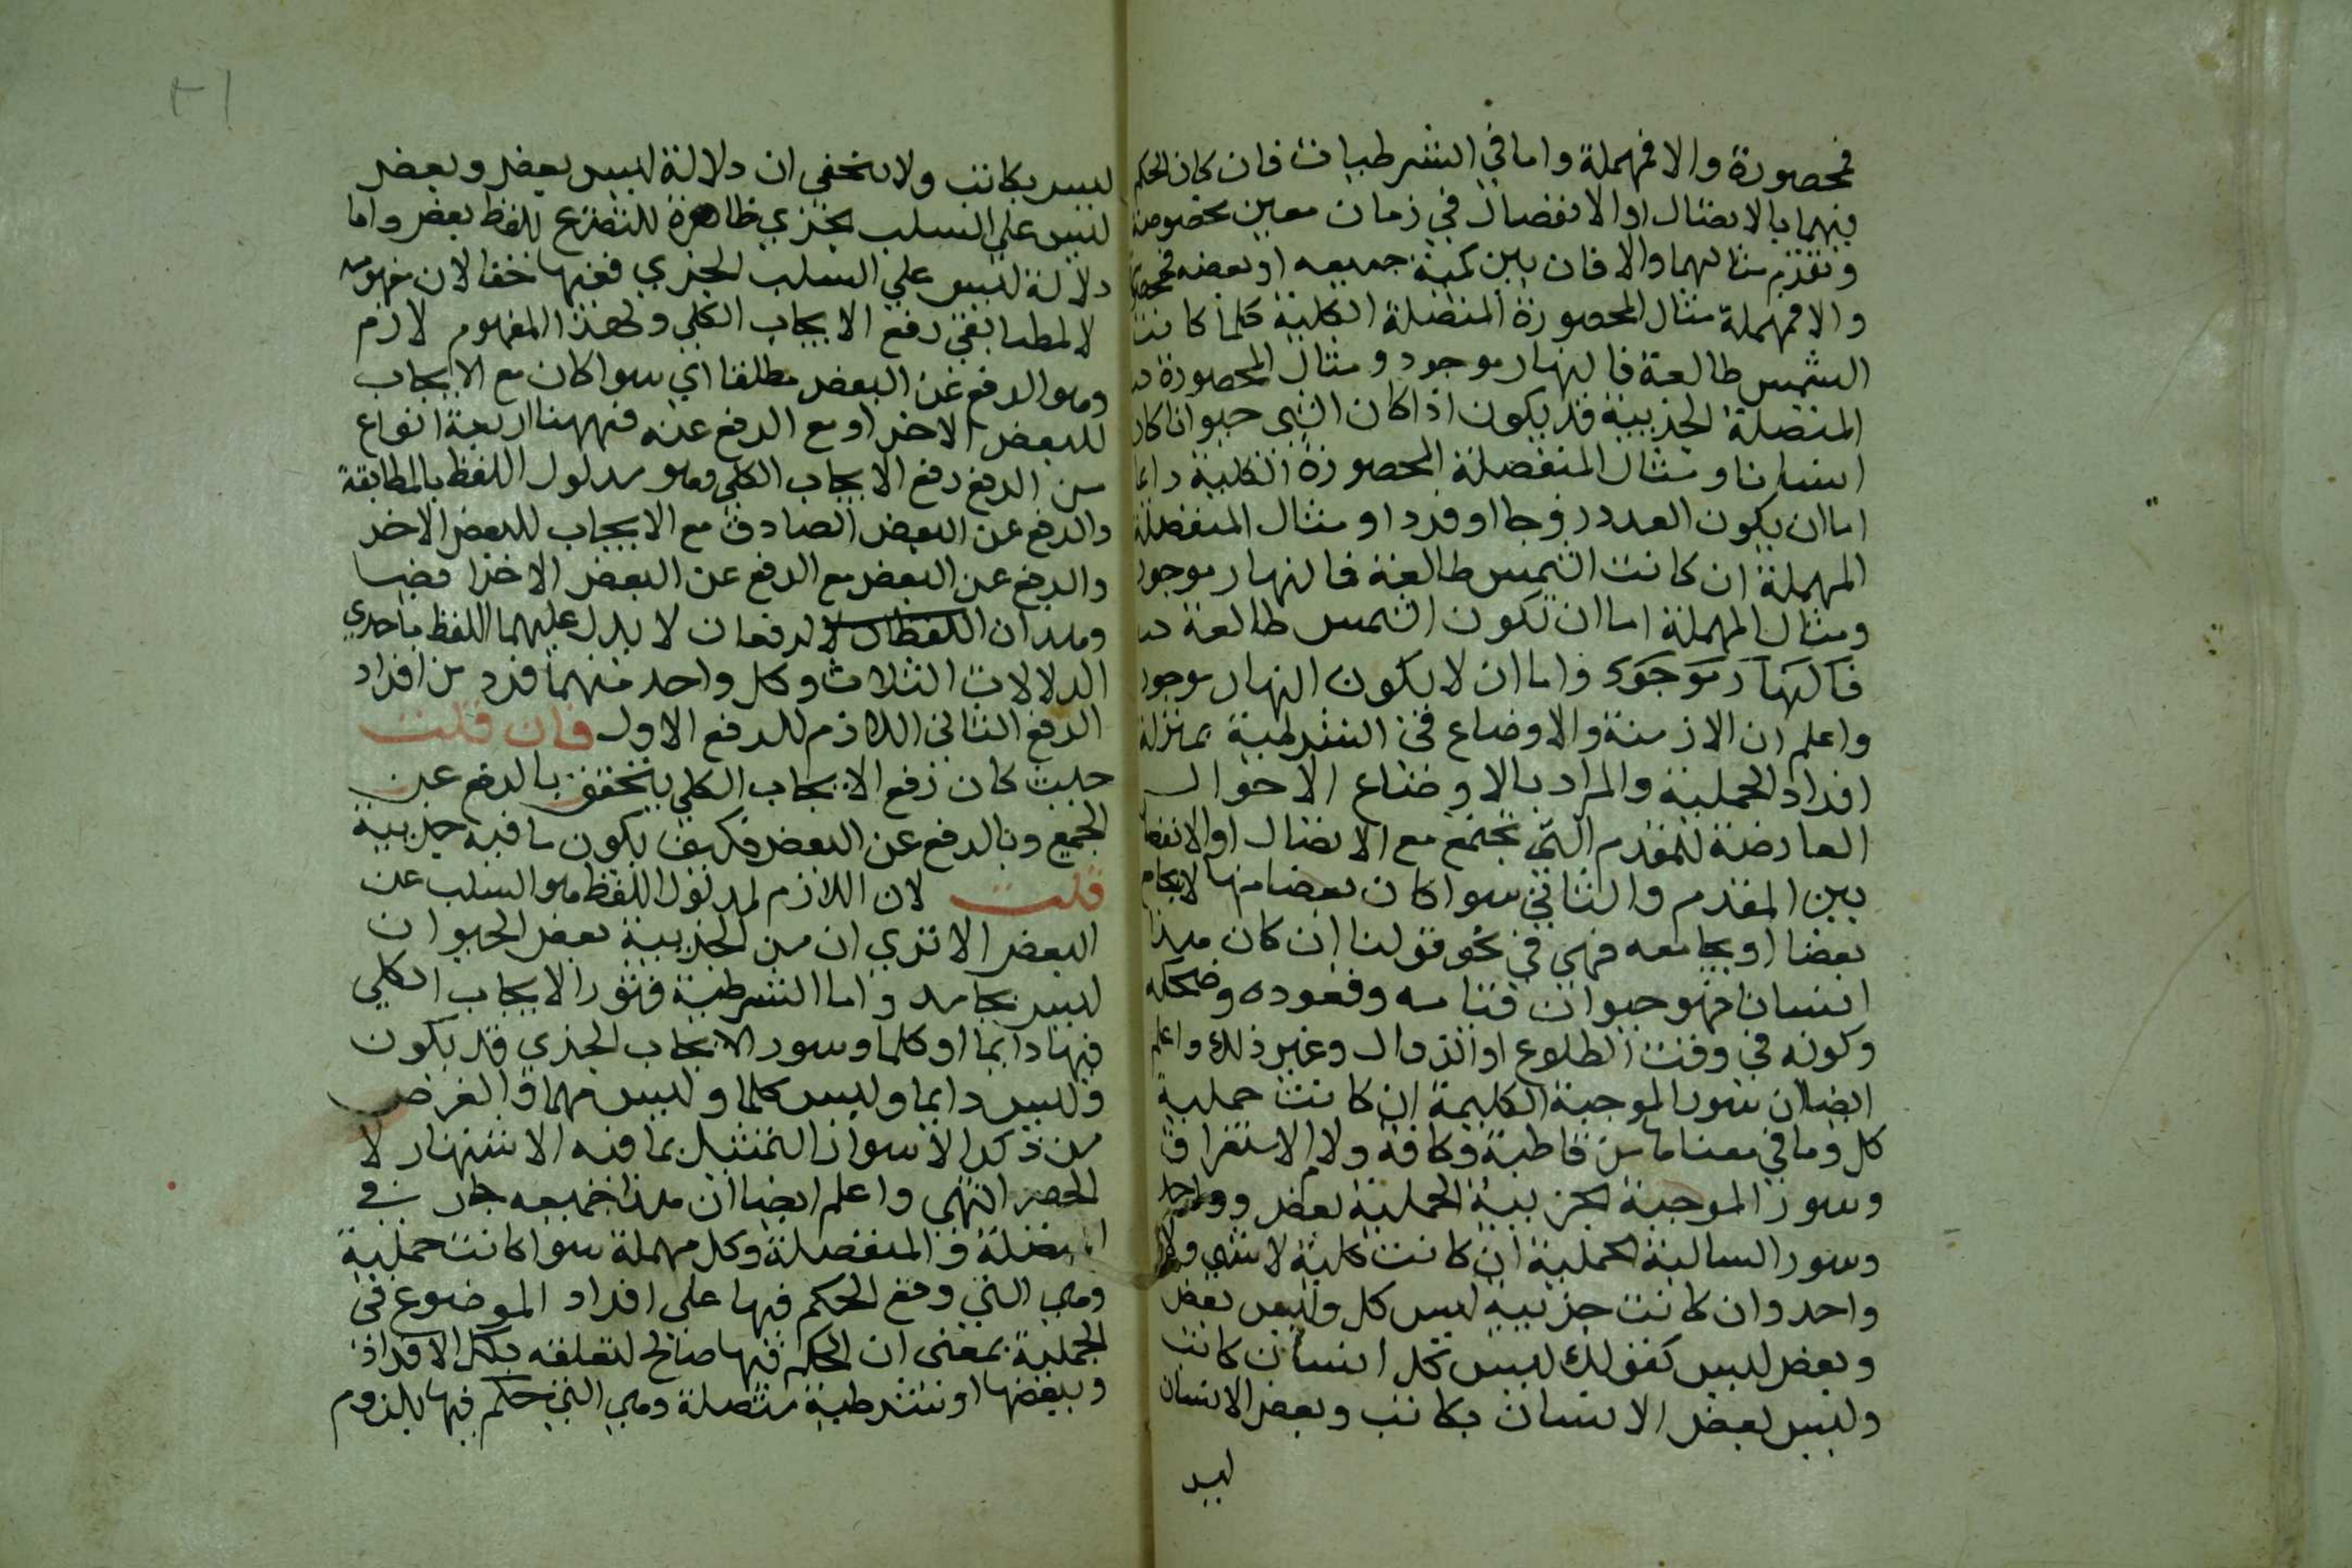 فمحصورة والا فمهملة واما في الشرطيات فان كان الحكم
فيهما بالاتصال او الانفصال في زمان معين مخصوصة
وتقدم مثالهما والا فان بين كمية جميعه او بعضه
والا فمهملة مثال المحصورة المتصلة الكلية كلما كانت
الشمس طالعة فالنهار موجود ومثال المحصورة
المتصلة الجزيية قد يكون اذا كان الشي حيوانا كان
انسانا ومثال المنفصلة المحصورة الكلية دايما
اما ان يكون العدد زوجا او فردا ومثال المنفصلة
المهملة ان كانت الشمس طالعة فالنهار موجود
ومثال المهملة اما ان تكون الشمس طالعة
فالنهار موجود واما ان لا يكون النهار موجود
واعلم ان الازمنة والاوضاع في الشرطية بمنزلة
افراد الحملية والمراد بالاوضاع الاحوال
العارضة للمقدم التي تجتمع مع الاتصال او الانفصال
بين المقدم والثاني سوا كان بعضا منها لا يجامع
بعضا او يجامعه فهي في نحو قولنا ان كان هذا
انسانا فهو حيوان قيامه وقعوده وضحكه
وكونه في وقت الطلوع او الزوال وغير ذلك واعلم
ايضا ان سور الموجبة الكلية ان كانت حملية
كل وما في معناها من قاطبة وكافة ولام الاستغراق
وسور الموجبة الجزيية الحملية بعض وواحد
وسور السالبة الحملية ان كانت كلية لا شي ولا
واحد وان كانت جزيية ليس كل وليس بعض
وبعض ليس كقولك ليس كل انسان كاتب
وليس بعض الانسان بكاتب وبعض الانسان
ليس
٢١
ليس بكاتب ولا يخفى ان دلالة ليس بعض وبعض
ليس على السلب الجزي ظاهرة للتصريح بلفظ بعض واما
دلالة ليس على السلب الجزي ففيها خفا لان مفهومه
المطابقي رفع الايجاب الكلي ولهذا المفهوم لازم
وهو الرفع عن البعض مطلقا اي سوا كان مع الايجاب
للبعض الاخر او مع الرفع عنه فههنا اربعة انواع
من الرفع رفع الايجاب الكلي وهو مدلول اللفظ بالمطابقة
والرفع عن البعض الصادق مع الايجاب للبعض الاخر
والرفع عن البعض مع الرفع عن البعض الاخر ايضا
وهذان الرفعان لا يدل عليهما اللفظ باحدي
الدلالات الثلاث وكل واحد منهما فرد من افراد
الرفع الثاني اللازم للرفع الاول فان قلت
حيث كان رفع الايجاب الكلي يتحقق بالرفع عن
الجميع وبالرفع عن البعض فكيف يكون ما فيه جزيية
قلت لان اللازم لمدلول اللفظ هو السلب عن
البعض الا تري ان من الجزيية بعض الحيوان
ليس بجامد واما الشرطية فسور الايجاب الكلي
فيها دايما او كلما وسور الايجاب الجزي قد يكون
وليس دايما وليس كلما وليس مهما والغرض
من ذكر الاسوار التمثيل بما فيه الاشتهار لا
الحصر انتهى واعلم ايضا ان هذا جميعه جار في
المتصلة والمنفصلة وكل مهملة سوا كانت حملية
وهي التي وقع الحكم فيها على افراد الموضوع في
الحملية بمعنى ان الحكم فيها صالح لتعلقه بكل الافراد
وببعضها او شرطية متصلة وهي التي حكم فيها بلزوم